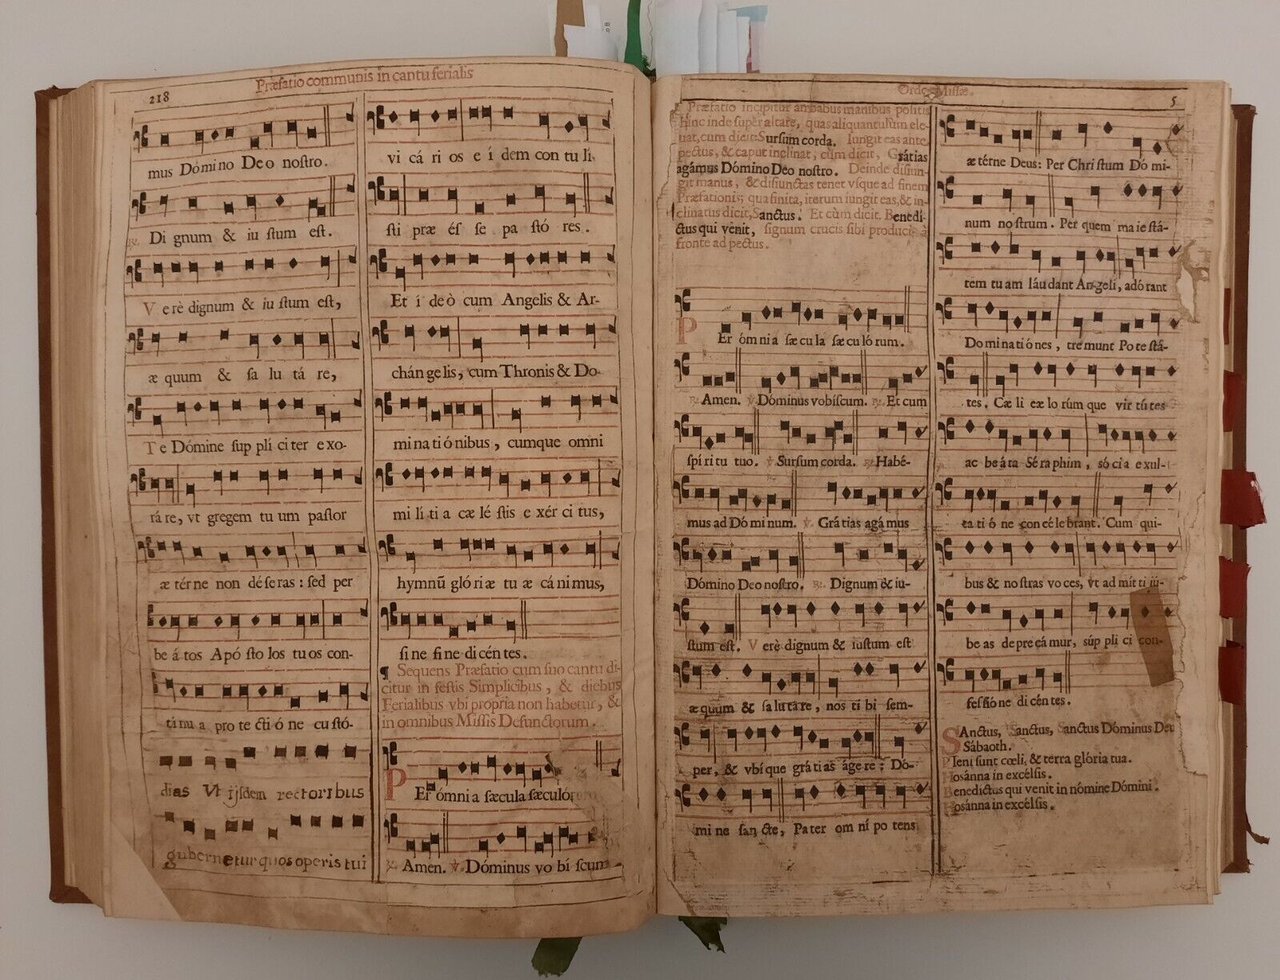 218
Præfatio communis in cantu ferialis
mus Dómino Deo nostro.
℟. Di gnum & iu stum est.
V erè dignum & iu stum est,
æ quum & sa lu tá re,
T e Dómine sup plí ci ter exo-
rá re, vt gregem tu um pastor
æ tér ne non dé se ras : sed per
be á tos Apó sto los tu os con-
tí nu a pro te cti ó ne cu stó-
dias Vt ijsdem rectoribus
gubernetur quos operis tui
vi cá ri os e í dem con tu li.
sti præ és se pa stó res.
Et í de ò cum Angelis & Ar-
chán ge lis, cum Thronis & Do-
mi na ti ó nibus, cumque omni
mi lí ti a cæ lé stis e xér ci tus,
hymnũ gló ri æ tu æ cá ni mus,
si ne fi ne di cén tes.
¶ Sequens Præfatio cum suo cantu di-
citur in festis Simplicibus, & diebus
Ferialibus vbi propria non habetur, &
in omnibus Missis Defunctorum.
P Er ómni a sæcula sæculó
℟. Amen. ℣. Dóminus vo bí scum
Ordo Missæ.
5
Præfatio incipitur ambabus manibus positis
hinc inde super altare, quas aliquantulùm ele-
uat, cum dicit: Sursùm corda. Iungit eas ante
pectus, & caput inclinat, cùm dicit, Grátias
agámus Dómino Deo nostro. Deinde disiun-
git manus, & disiunctas tenet vsque ad finem
Præfationis; qua finita, iterum iungit eas, & in-
clinatus dicit, Sanctus. Et cùm dicit, Benedi-
ctus qui venit, signum crucis sibi producit à
fronte ad pectus.
P Er ómni a sæ cu la sæ cu ló rum.
℟. Amen. ℣. Dóminus vobíscum. ℟. Et cum
spí ri tu tuo. ℣. Sursum corda. ℟. Habé-
mus ad Dó mi num. ℣. Grá tias agá mus
Dómino Deo nostro. ℟. Dignum & iu-
stum est. V erè dignum & iustum est
æquum & sa lu tá re, nos ti bi sem-
per, & vbí que grá ti as áge re : Dó-
mi ne san cte, Pa ter om ní po tens
æ térne Deus: Per Chri stum Dó mi-
num no strum. Per quem ma ie stá-
tem tu am láu dant Angeli, adó rant
Do mi na ti ó nes, tre munt Po te stá-
tes. Cæ li cæ lo rúm que vir tú tes
ac be á ta Sé ra phim, só ci a exul-
ta ti ó ne con cé le brant. Cum qui-
bus & no stras vo ces, vt ad mit ti iú-
be as de pre cá mur, súp pli ci con-
fes sió ne di cén tes.
SAnctus, Sanctus, Sanctus Dóminus Deu
Sábaoth.
Pleni sunt cœli, & terra glória tua.
Hosánna in excélsis.
Benedictus qui venit in nómine Dómini.
Hosánna in excélsis.